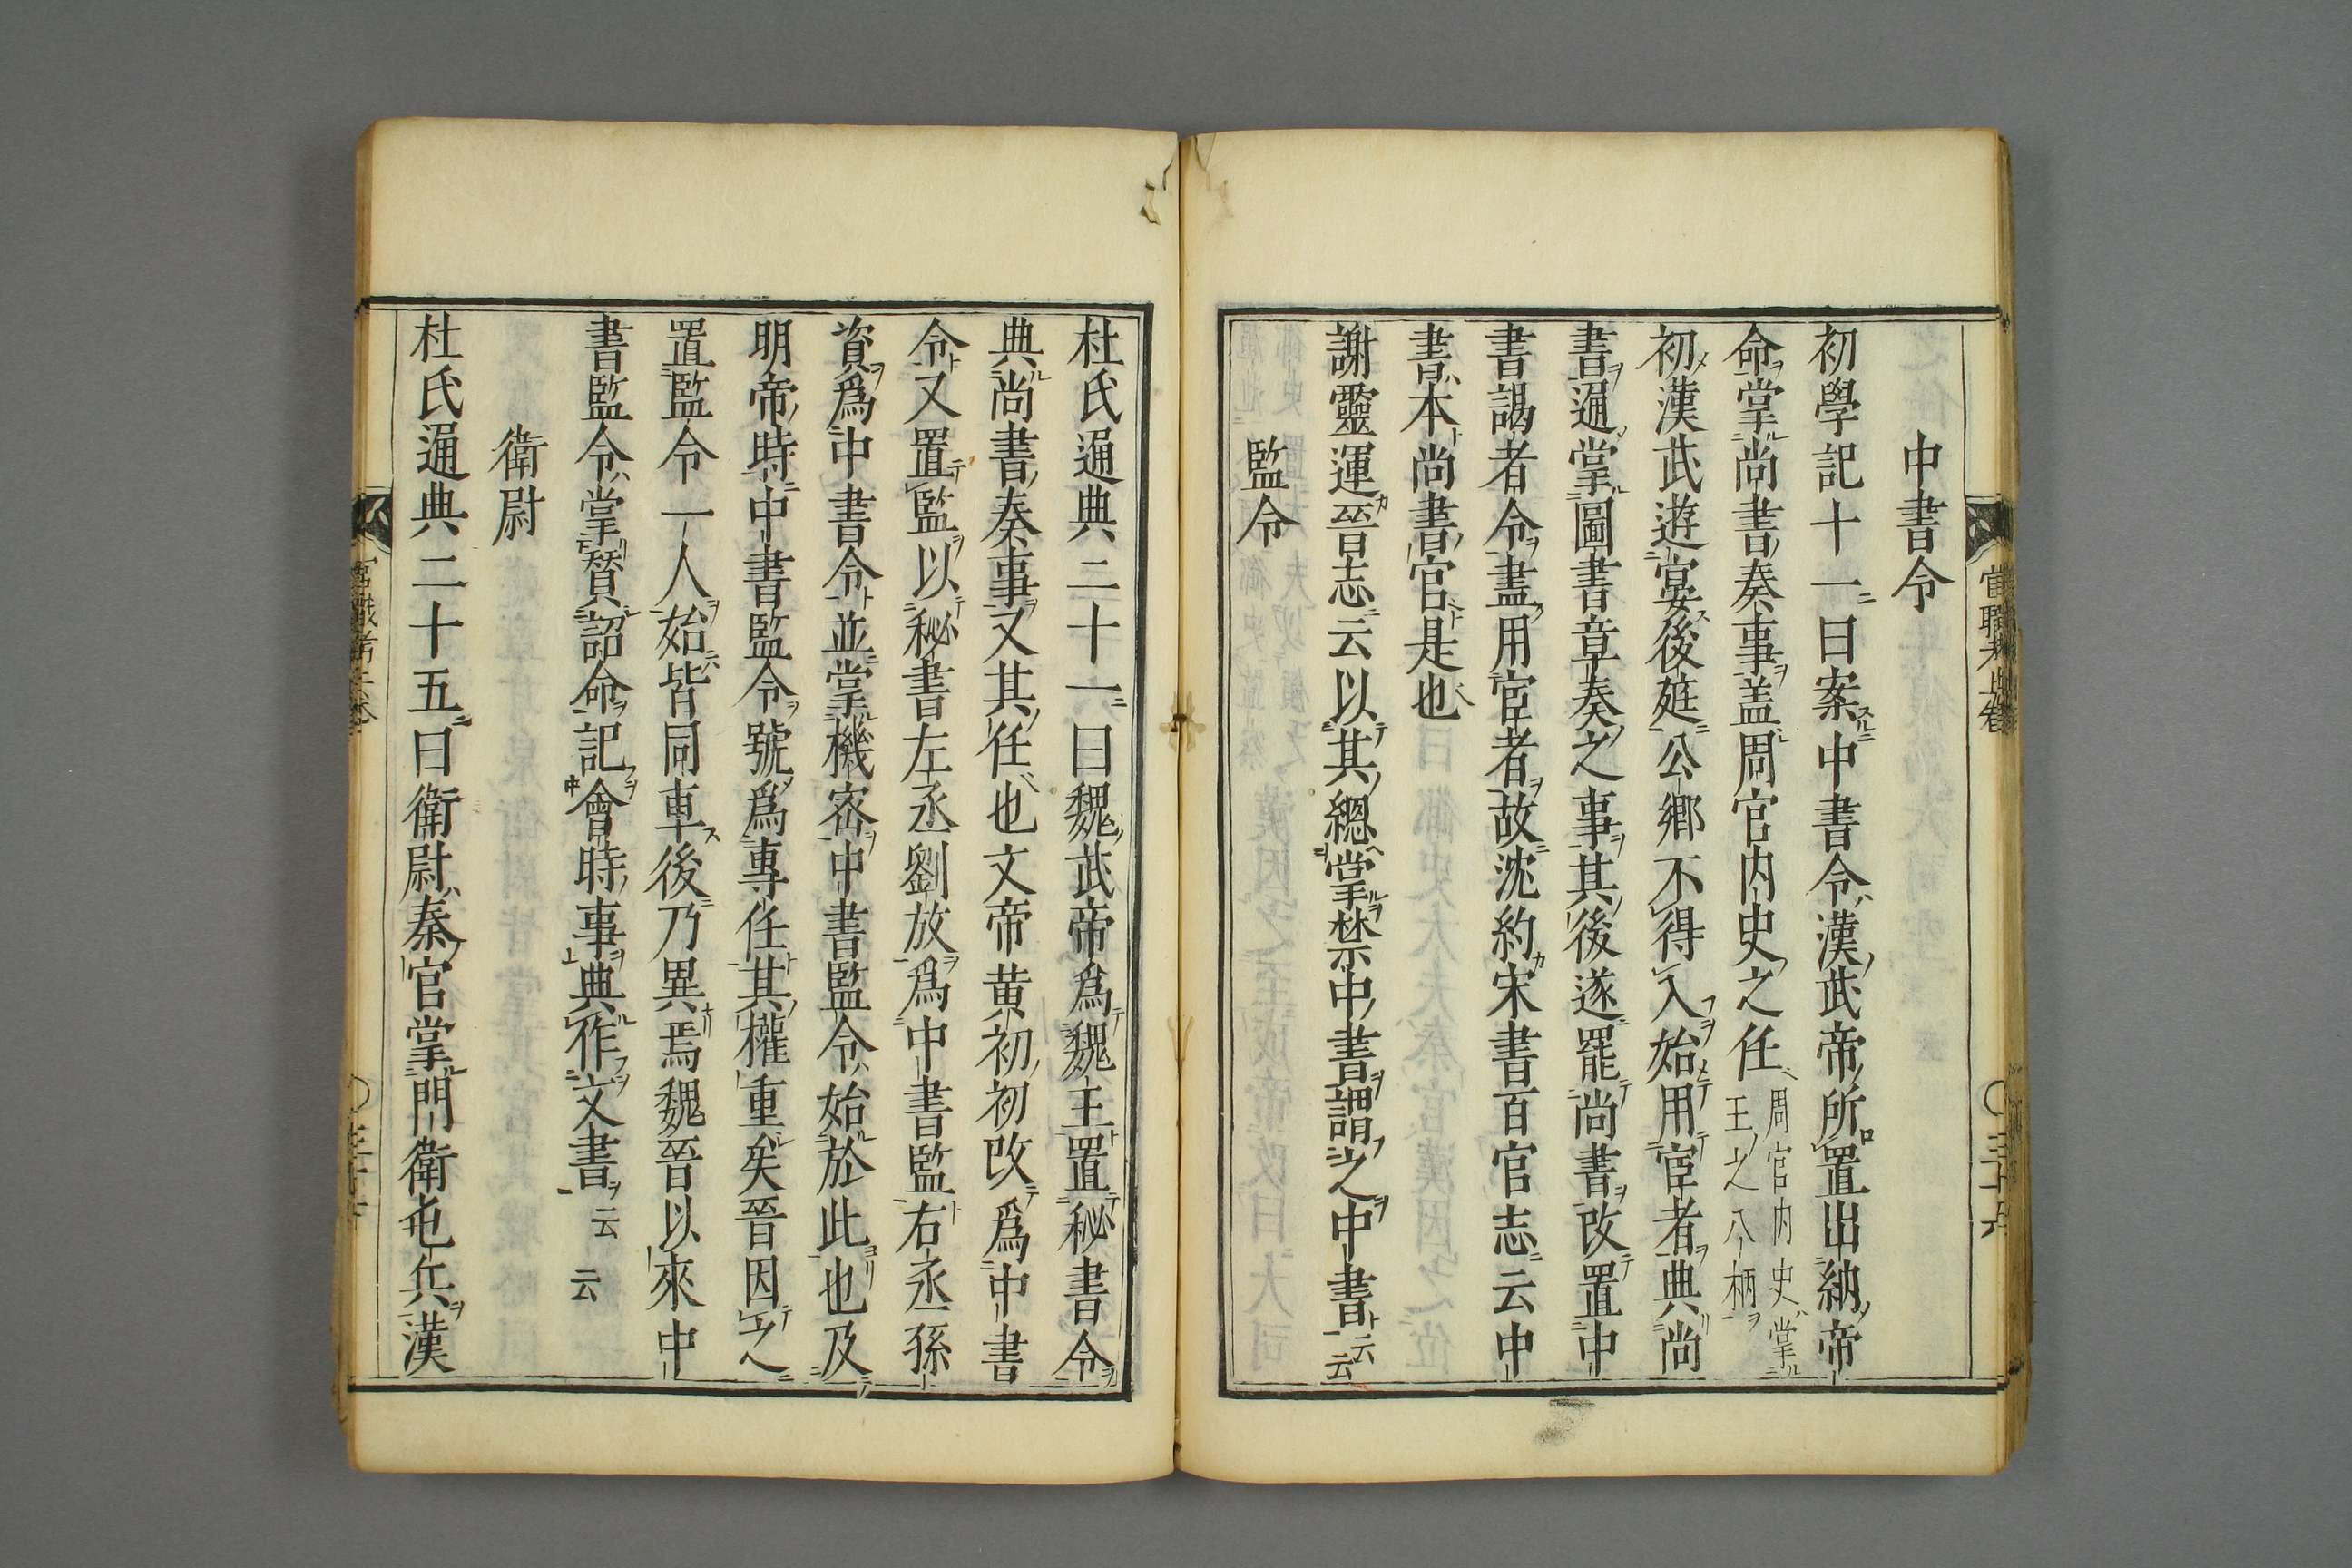 中書令
初學記十一曰案中書令漢武帝所置出納帝
命掌尚書奏事盖周官内史之任周官内史掌
王之八柄
初漢武遊宴後庭公卿不得入始用宦者典尚
書通掌圖書章奏之事其後遂罷尚書改置中
書謁者令盡用宦者故沈約宋書百官志云中
書本尚書官是也
謝靈運晉志云以其總掌禁中書謂之中書云云
監令
杜氏通典二十一曰魏武帝爲魏王置秘書令
典尚書奏事又其任也文帝黄初初改爲中書
令又置監以秘書左丞劉放爲中書監右丞孫
資爲中書令並掌機密中書監令始於此也及
明帝時中書監令號爲專任其權重矣晉因之
置監令一人始皆同車後乃異焉魏晉以來中
書監令掌贊詔命記會時事典作文書云云
衛尉
杜氏通典二十五曰衛尉秦官掌門衛屯兵漢